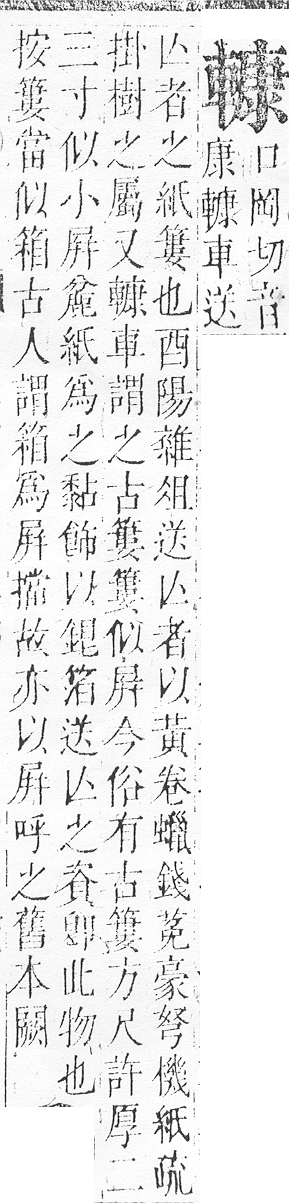 𨎍
口岡切音
康𨎍車送
亾者之紙簍也酉陽雜俎送亾者以黃卷蠟錢菟豪弩機紙疏
掛樹之屬又𨎍車謂之古簍簍似屛今俗有古簍方尺許厚二
三寸似小屛麄紙爲之黏飾以錕箔送亾之賫卽此物也
按簍當似箱古人謂箱爲屛擋故亦以屛呼之舊本闕